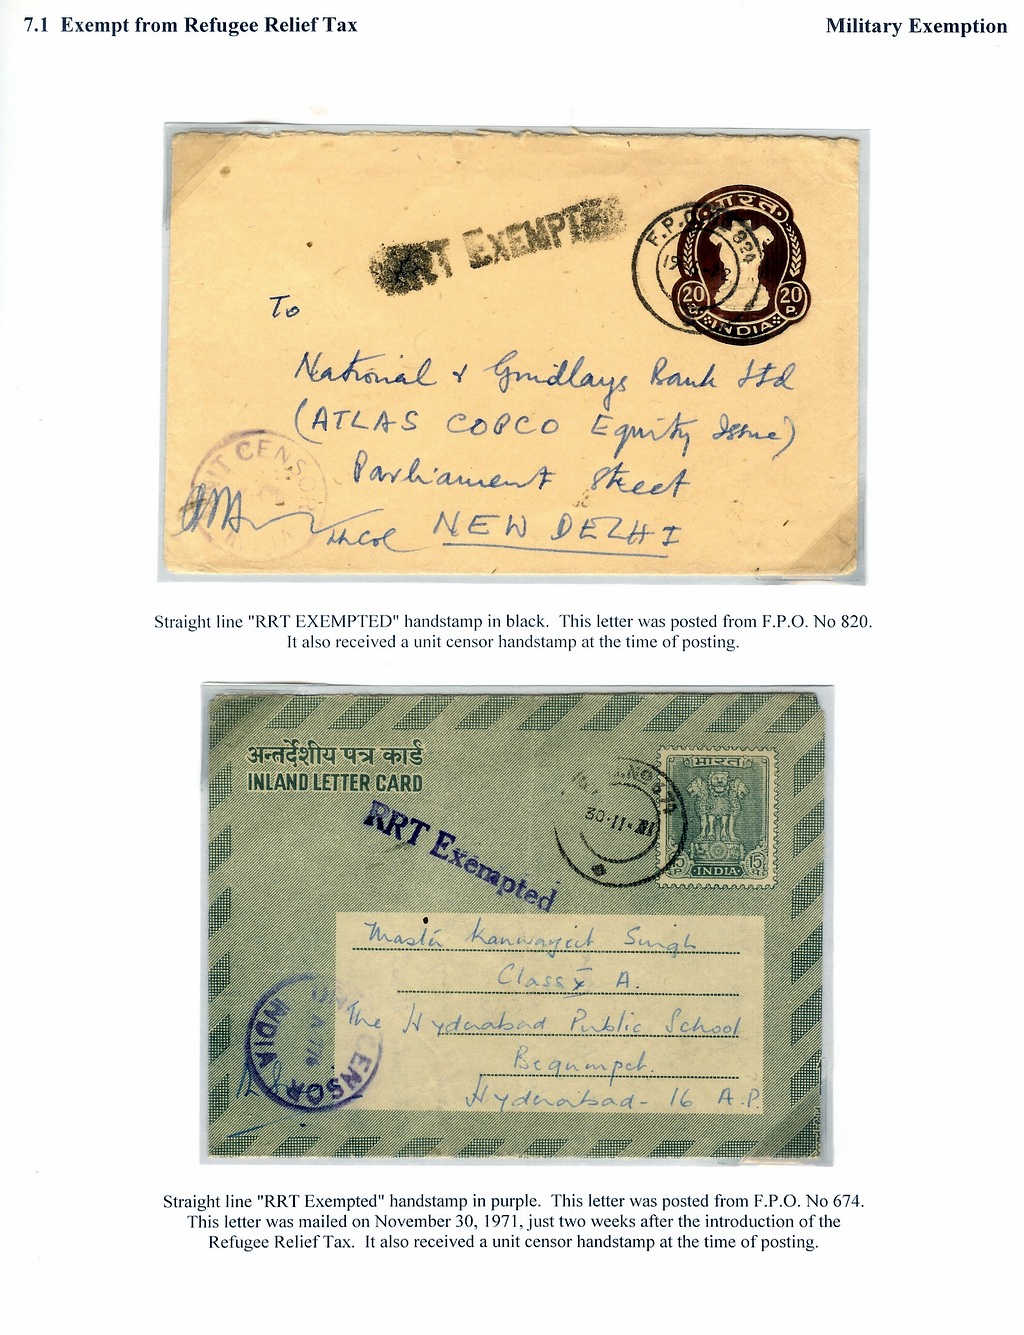 7.1 Exempt from Refugee Relief Tax
Military Exemption
RRT EXEMPTED
F.P.O.
भारत
20 20
P.
INDIA
To
National & Grindlays Bank Ltd
(ATLAS COPCO Equity Issue)
Parliament Street
NEW DELHI
UNIT CENSOR
INDIA
Lt Col
Straight line "RRT EXEMPTED" handstamp in black. This letter was posted from F.P.O. No 820.
It also received a unit censor handstamp at the time of posting.
अन्तर्देशीय पत्र कार्ड
INLAND LETTER CARD
RRT Exempted
NO 674
30·11·71
भारत
15 15
P
INDIA
Master Kanwarjeet Singh
Class X A.
The Hyderabad Public School
Begumpet.
Hyderabad - 16 A.P.
UNIT CENSOR
A
INDIA
Straight line "RRT Exempted" handstamp in purple. This letter was posted from F.P.O. No 674.
This letter was mailed on November 30, 1971, just two weeks after the introduction of the
Refugee Relief Tax. It also received a unit censor handstamp at the time of posting.